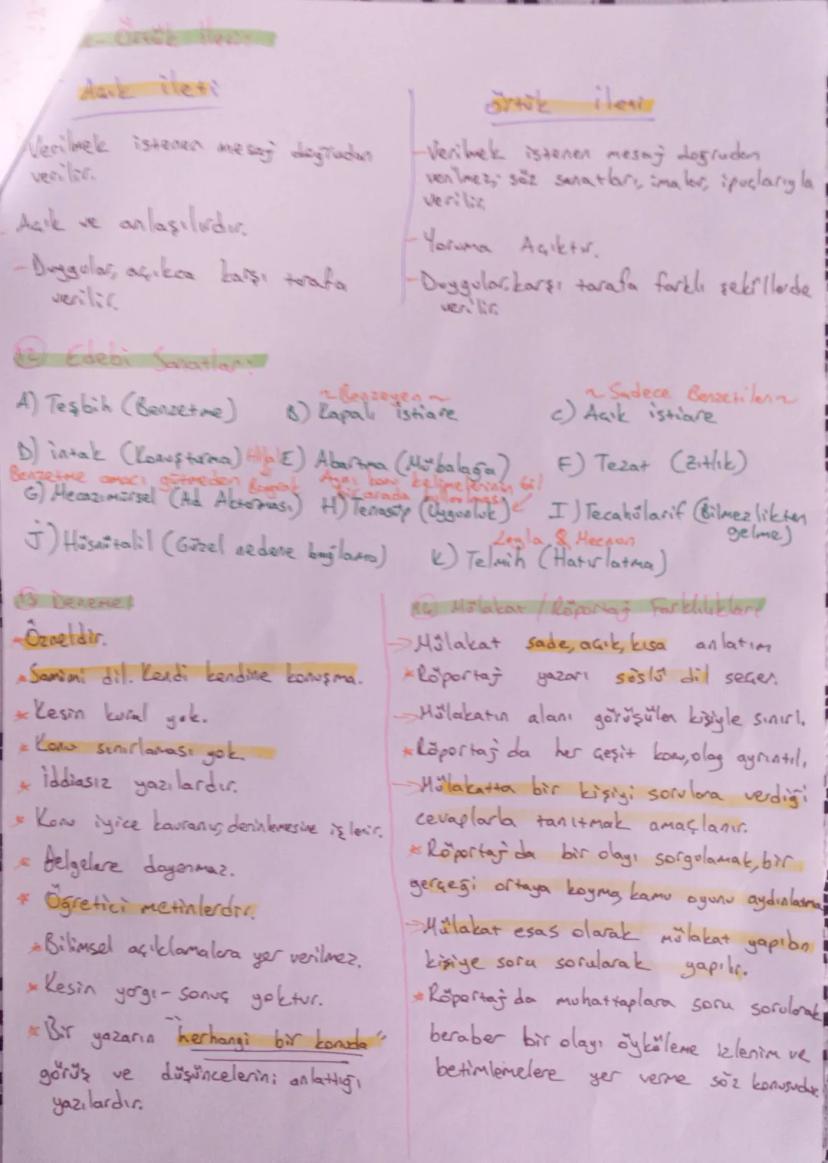 - Örtük ileti
Açık ileti
Verilmek istenen mesaj doğrudan
verilir.
Açık ve anlaşılırdır.
- Duygular, açıkca karşı tarafa
verilir.
örtük ileti
- Verilmek istenen mesaj doğrudan
verilmez, söz sanatları, imalar, ipuçlarıyla
verilir.
- Yoruma Açıktır.
- Duygular, karşı tarafa farklı şekillerde
verilir.
12 Edebi Sanatlar:
~ Benzeyen ~
~ Sadece Benzetilen ~
A) Teşbih (Benzetme) B) Kapalı istiare C) Açık istiare
D) intak (Konuşturma) E) Abartma (Mübalağa) F) Tezat (Zıtlık)
Benzetme amacı gütmeden
Aynı konu kelimelerinin bir
arada kullanılması
G) Mecazımürsel (Ad Aktarması) H) Tenasüp (Uygunluk) I) Tecahülarif (Bilmezlikten
gelme)
Leyla & Mecnun
J) Hüsnütalil (Güzel nedene bağlama) K) Telmih (Hatırlatma)
13 Deneme:
* Özneldir.
* Samimi dil. Kendi kendine konuşma.
* Kesin kural yok.
* Konu sınırlaması yok
* İddiasız yazılardır.
* Konu iyice kavranış, derinlemesine işlenir.
* Belgelere dayanmaz.
* Öğretici metinlerdir.
* Bilimsel açıklamalara yer verilmez.
* Kesin yargı-sonuç yoktur.
* Bir yazarın "herhangi bir konuda"
görüş ve düşüncelerini anlattığı
yazılardır.
14 Mülakat / Röportaj Farklılıkları
→ Mülakat sade, açık, kısa anlatım
* Röportaj yazarı süslü dil seçer.
→ Mülakatın alanı görüşülen kişiyle sınırlı.
* Röportaj da her çeşit konu, olay ayrıntılı.
→ Mülakatta bir kişiyi sorulara verdiği
cevaplarla tanıtmak amaçlanır.
* Röportaj da bir olayı sorgulamak, bir
gerçeği ortaya koyma, kamu oyunu aydınlatma
→ Mülakat esas olarak mülakat yapılan
kişiye soru sorularak yapılır.
* Röportaj da muhattaplara soru sorularak
beraber bir olayı öyküleme izlenim ve
betimlemelere yer verme söz konusudur.